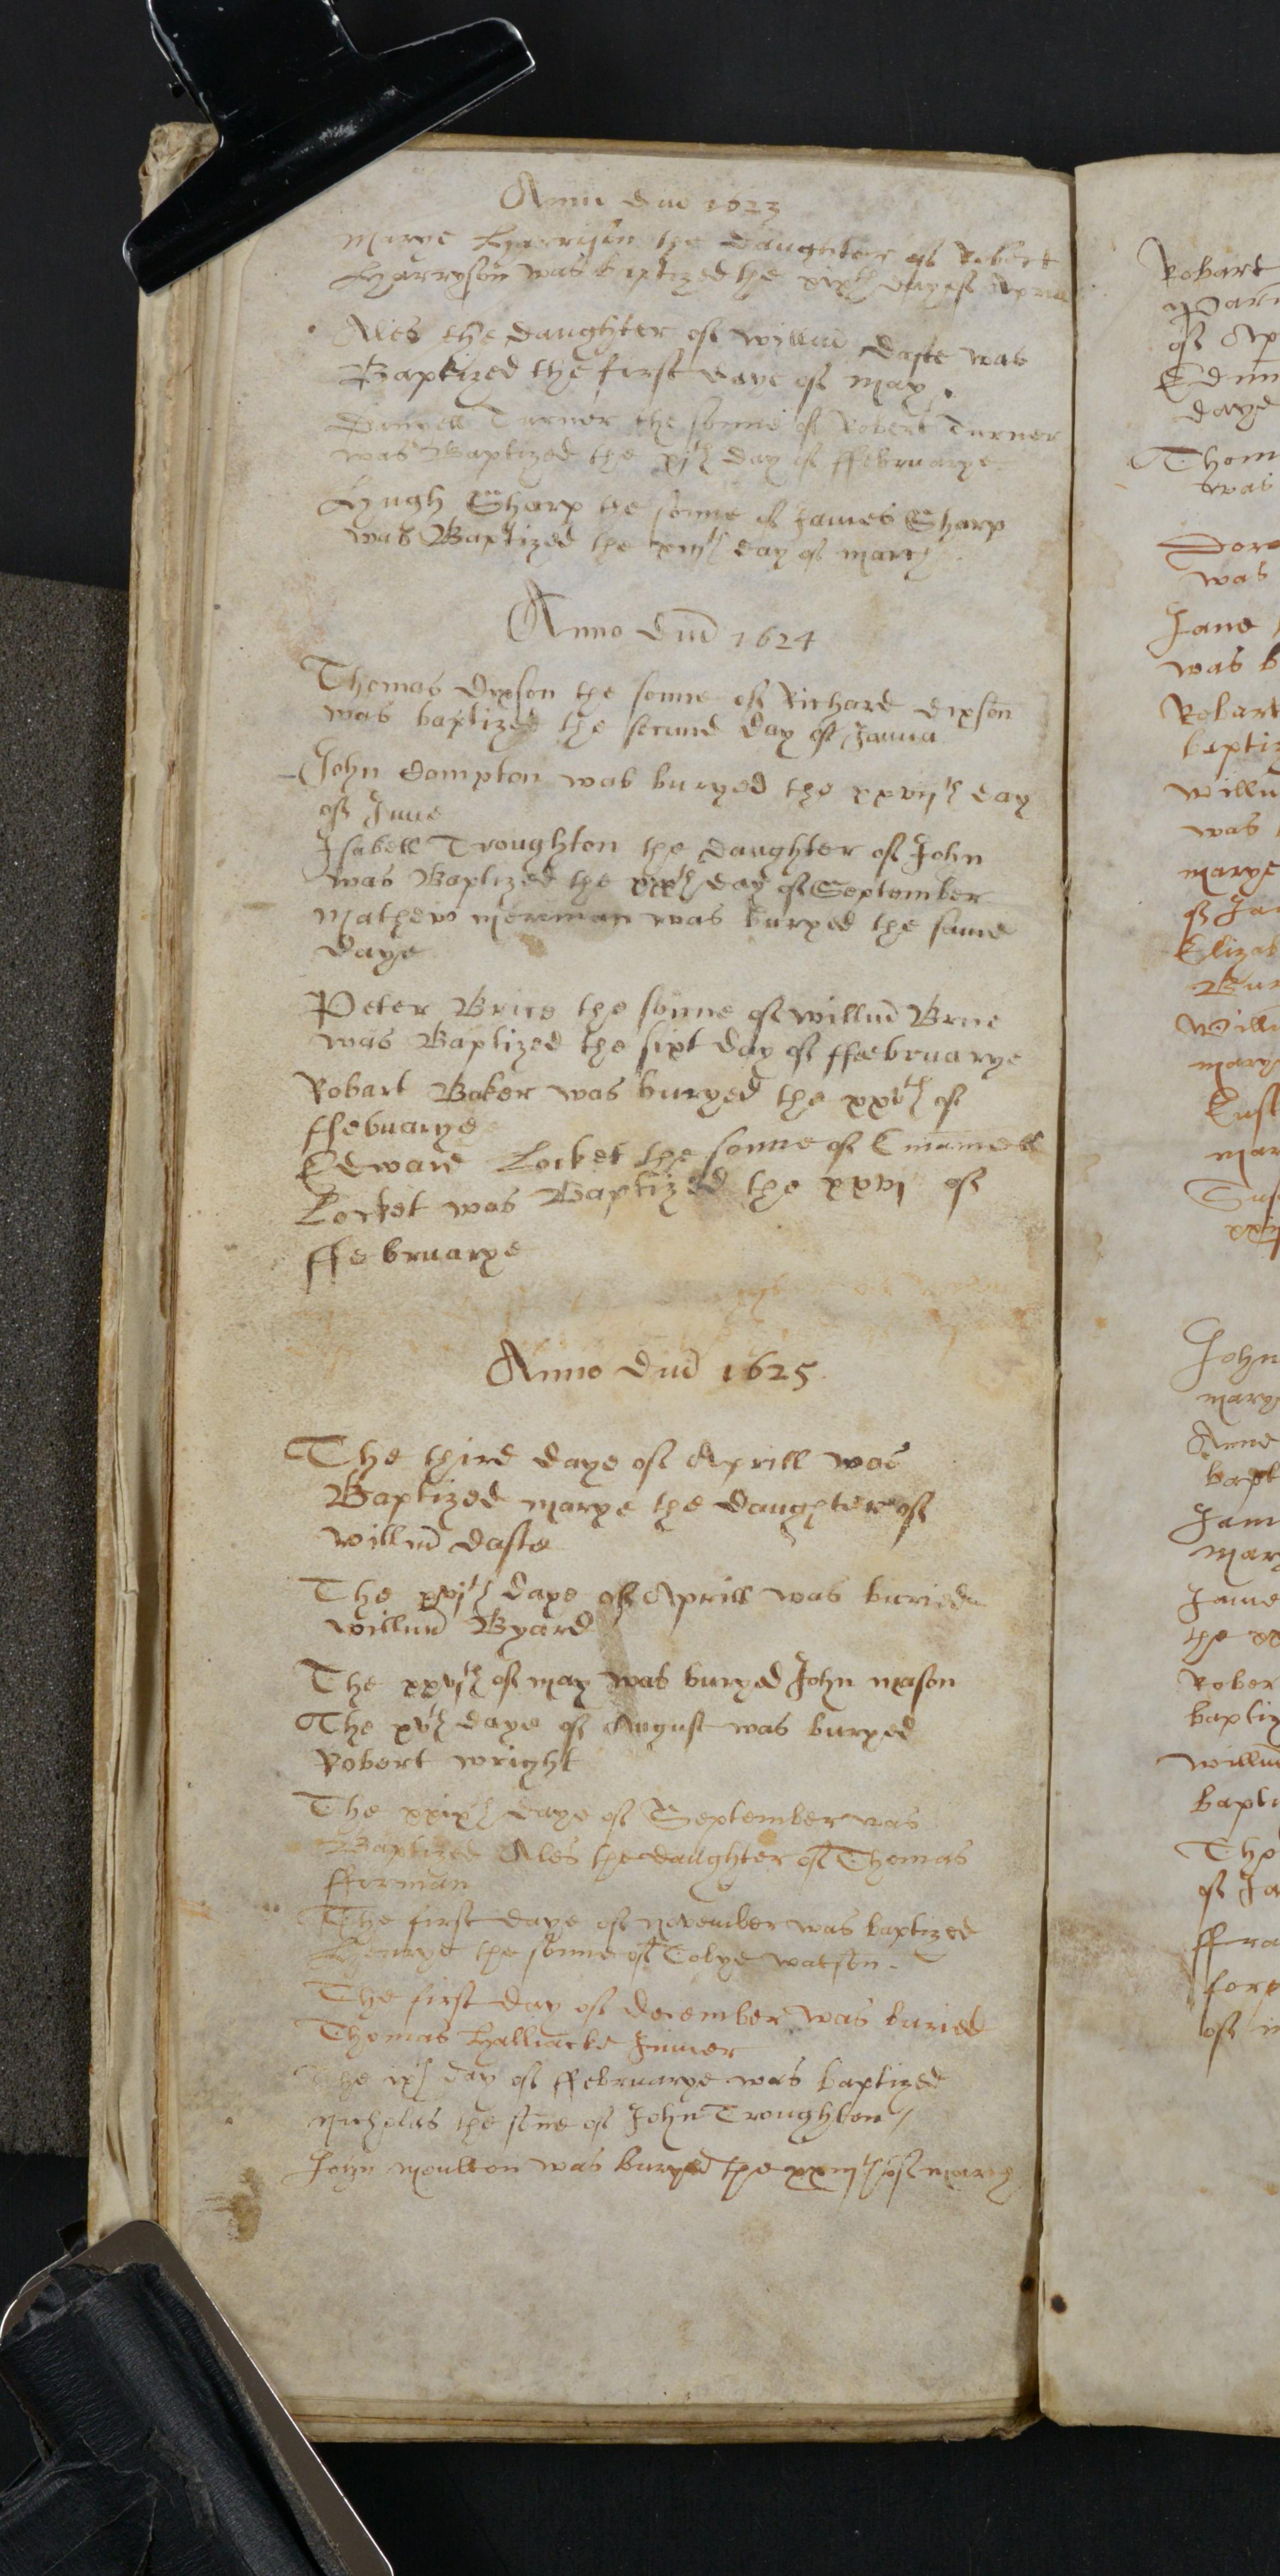 Anno dnī 1623
Marye Harrison the Daughter of Robert
Harryson was baptized the xixth daye of Aprill
Ales the daughter of Willm̄ Daste was
Baptized the first daye of May.
Daniell Turner the sonne of Robert Turner
was Baptized the xjth day of ffebruarye
Hugh Sharp the sonne of James Sharp
was Baptized the day of March
Anno Dnī 1624
Thomas Dixson the sonne of Richard Dixson
was baptized the second day of
John Compton was buryed the xxvijth day
of June
Isabell Troughton the Daughter of John
was Baptized the xxth day of September
Mathew Merriman was buryed the same
daye
Peter Brice the sonne of Willm̄ Brice
was Baptized the sixt day of ffebruarye
Robart Baker was buryed the xxvth of
ffebuarye
Edward Locket the sonne of Emamell
Locket was Baptized the xxvj of
ffebruarye
Anno Dnī 1625
The third daye of Aprill was
Baptized Marye the daughter of
Willm̄ Daste
The xvjth daye of Aprill was buried
Willm̄ Byard
The xxvjth of May was buryed John Mason
The xvth daye of August was buryed
Robert Wright
The xxixth daye of September was
Baptized Ales the daughter of Thomas
fferman
The first daye of November was baptized
Henrye the sonne of Tobye Watson.
The first day of December was buried
Thomas Halliacke Junier
The ixth day of ffebruarye was baptized
Nicholas the sone of John Troughton/
John Moulton was buryed the xxiijth of March
Robart
of Ap
daye
Thom
was
Doro
was
Jane
was b
Robart
baptiz
Willm
was
Marye
of Ja
Elizab
Bur
Willm
Mary
mar
Sus
John
Marye
Anne
bapt
Jam
Mar
Jame
the xx
Rober
baptiz
Willm
bapti
The
of Ja
ffra
of